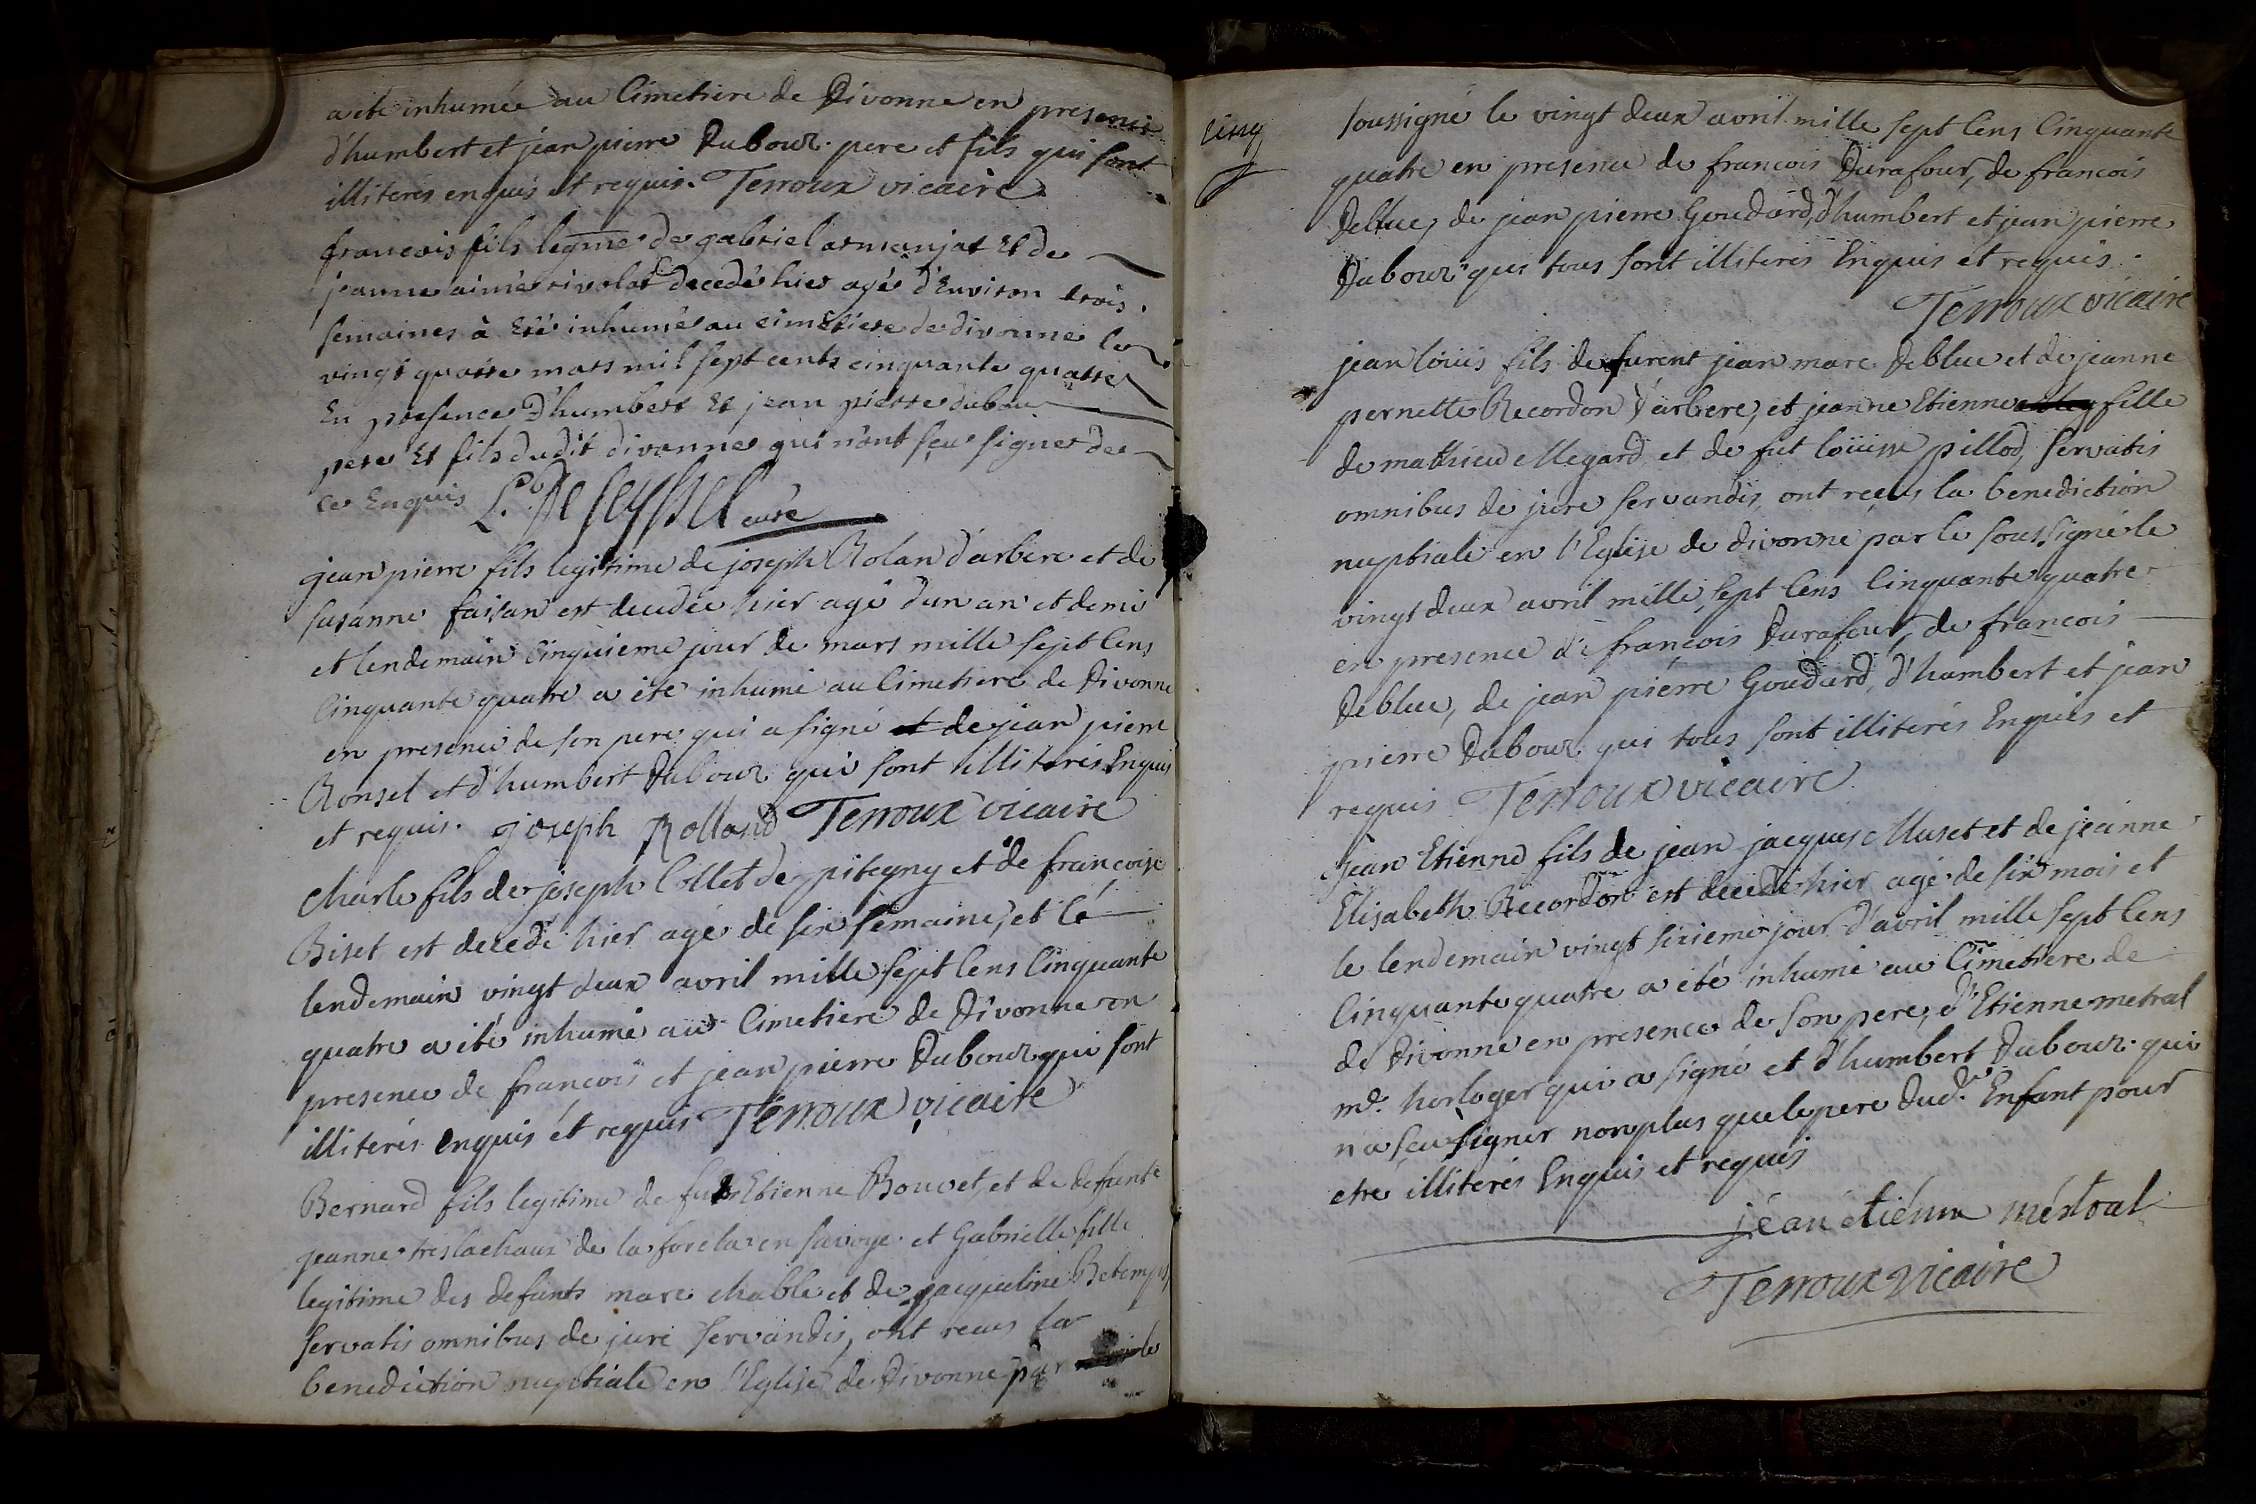 a ete inhumée au Cimetiere de Divonne en presence
d'humbert et jean pierre Dubouz pere et fils qui sont
illiterés enquis et requis. Terroux vicaire
francois fils legme de gabriel armanjat Et de
jeanne aimé rivolat decedé hier agé d'Environ trois
semaines à Eté inhumé au cimetiere de divonne le
vingt quatre mars mil sept cents cinquante quatre
En presence D'humbert Et jean pierre dubou
pere Et fils dudit divonne qui n'ont sçu signer de
ce Enquis L. De Seyssel curé
jean pierre fils legitime de joseph Rolan d'arbere et de
susanne faisan est decedée hier agé d'un an et demi
et lendemain cinquieme jour de mars mille sept Cens
Cinquante quatre a ete inhumé au Cimetiere de Divonne
en presence de son pere qui a signé et de jean pierre
Ronset et d'humbert Dubouz qui sont illiterés Enquis
et requis. joseph Rolland Terroux vicaire
Charle fils de joseph Collet de pitegny et de francoise
Biset est decedé hier agé de six semaines, et le
lendemain vingt deux avril mille sept Cens Cinquante
quatre a été inhumé au Cimetiere de Divonne en
presence de francois et jean pierre Dubouz qui sont
illiterés enquis et requis Terroux vicaire
Bernard fils legitime de fut Etienne Bouvet, et de defunte
jeanne treslachaux de la forcla en savoye et Gabrielle fille
legitime des defunts marc chable et de jacqueline Betemps,
servatis omnibus de jure servandis, ont recus la
benediction nuptiale en l'Eglise de Divonne par le
soussigné le vingt deux avril mille sept Cens Cinquante
quatre en presence de francois Durafour, de francois
Deblue, de jean pierre Goudard, d'humbert et jean pierre
Dubouz qui tous sont illiterés Enquis et requis.
Terroux vicaire
jean loüis fils de furent jean marc Deblue et de jeanne
pernette Recordon d'arbere, et jeanne Etienne fille
de mathieu Megard et de fut loüise pillod, servatis
omnibus de jure servandis, ont reçus la benediction
nuptiale en l'Eglise de divonne par le soussigné le
vingt deux avril mille sept Cens Cinquante quatre
en presence de françois Durafour, de françois
Deblue, de jean pierre Goudard, d'humbert et jean
pierre Dubouz qui tous sont illiterés Enquis et
requis Terroux vicaire
Jean Etienne fils de jean jacques Muset et de jeanne
Elisabeth Recordon est decedé hier agé de six mois et
le lendemain vingt sixieme jour d'avril mille sept Cens
Cinquante quatre a été inhumé au Cimetiere de
de Divonne en presence de son pere, d'Etienne metral
md. horloger qui a signé et d'humbert Dubouz qui
n'a sçu signer non plus que le pere dud. Enfant pour
etre illiterés Enquis et requis
jéan étiénne méstral
Terroux vicaire